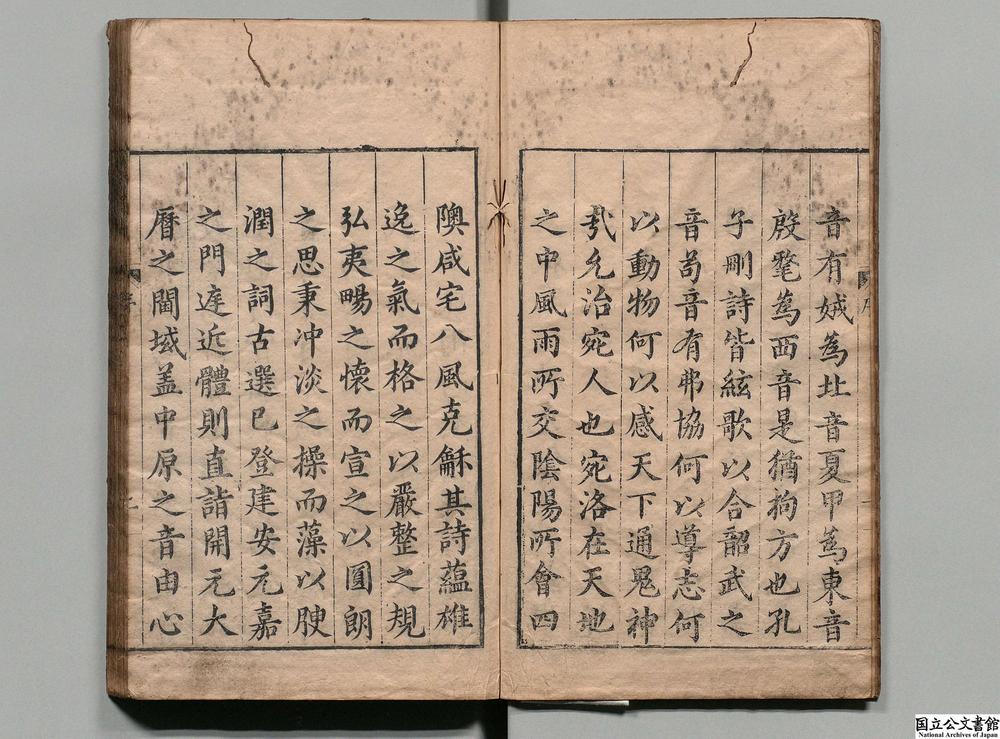 音有娀為北音夏甲為東音
殷氂為西音是猶拘方也孔
子刪詩皆絃歌以合韶武之
音苟音有弗協何以導志何
以動物何以感天下通鬼神
㢤允治宛人也宛洛在天地
之中風雨所交陰陽所會四
隩咸宅八風克龢其詩蘊雄
逸之氣而格之以嚴整之規
弘夷暢之懷而宣之以圓朗
之思秉冲淡之操而藻以腴
潤之詞古選已登建安元嘉
之門庭近體則直詣開元大
曆之閫域盖中原之音由心
序
国立公文書館
National Archives of Japan